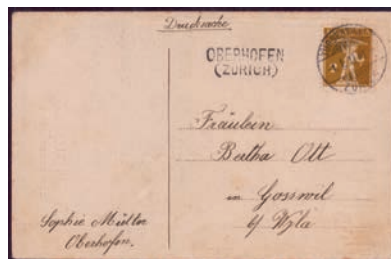 Drucksache
OBERHOFEN
(ZÜRICH)
Fräulein
Bertha Ott
in Gosswil
b/ Wyla
Sophie Müller
Oberhofen.